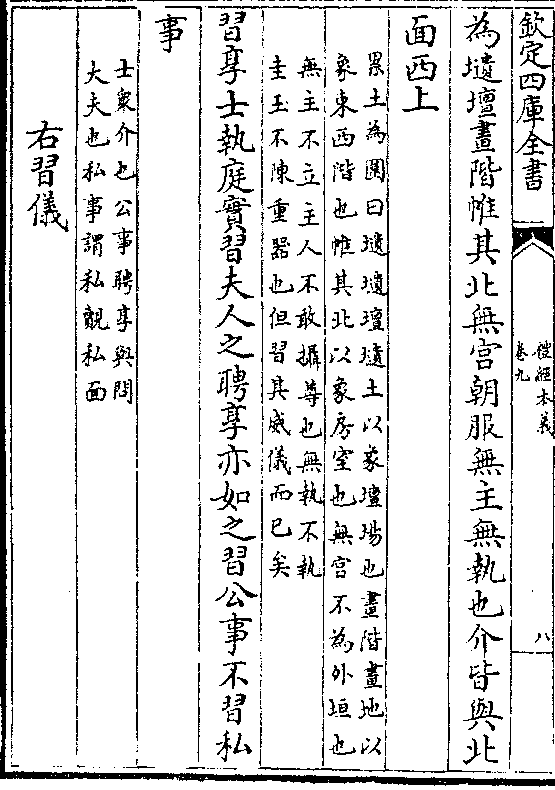 欽定四庫全書
禮經本義
卷九
八
為壝壇畫階帷其北無宮朝服無主無執也介皆與北
面西上
累土為圍曰壝壝壇壝土以象壇場也畫階畫地以
象東西階也帷其北以象房室也無宮不為外垣也
無主不立主人不敢攝尊也無執不執
圭玉不陳重器也但習其威儀而已矣
習享士執庭實習夫人之聘享亦如之習公事不習私
事
士衆介也公事聘享與問
大夫也私事謂私覿私面
右習儀